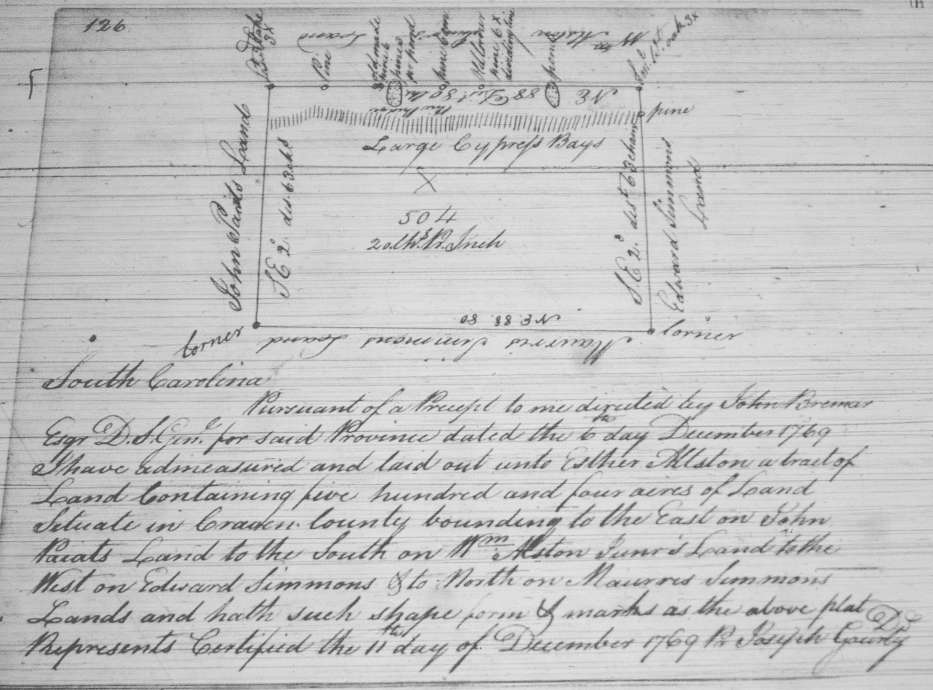 126
John Paiats Land
Pine
pine
Large Cypress Bays
504
20 chs. Pr. Inch
S E 2° dis. 63 chs
S E 2° dist 63 chain
Edward Simmons
Land
NE 88 80
corner
Maurris Simmons Land
Corner
South Carolina
Pursuant of a Precept to me directed by John Bremar
Esqr D. S. Genl. for said Province dated the 6th day December 1769
I have admeasured and laid out unto Esther Allston a tract of
Land Containing five hundred and four acres of Land
Situate in Craven County bounding to the East on John
Paiats Land to the South on Wm Alston Junr's Land to the
West on Edward Simmons & to North on Maurris Simmons
Lands and hath such shape form & marks as the above plat
Represents Certified the 11th day of December 1769 Pr Joseph Gourly D.S.